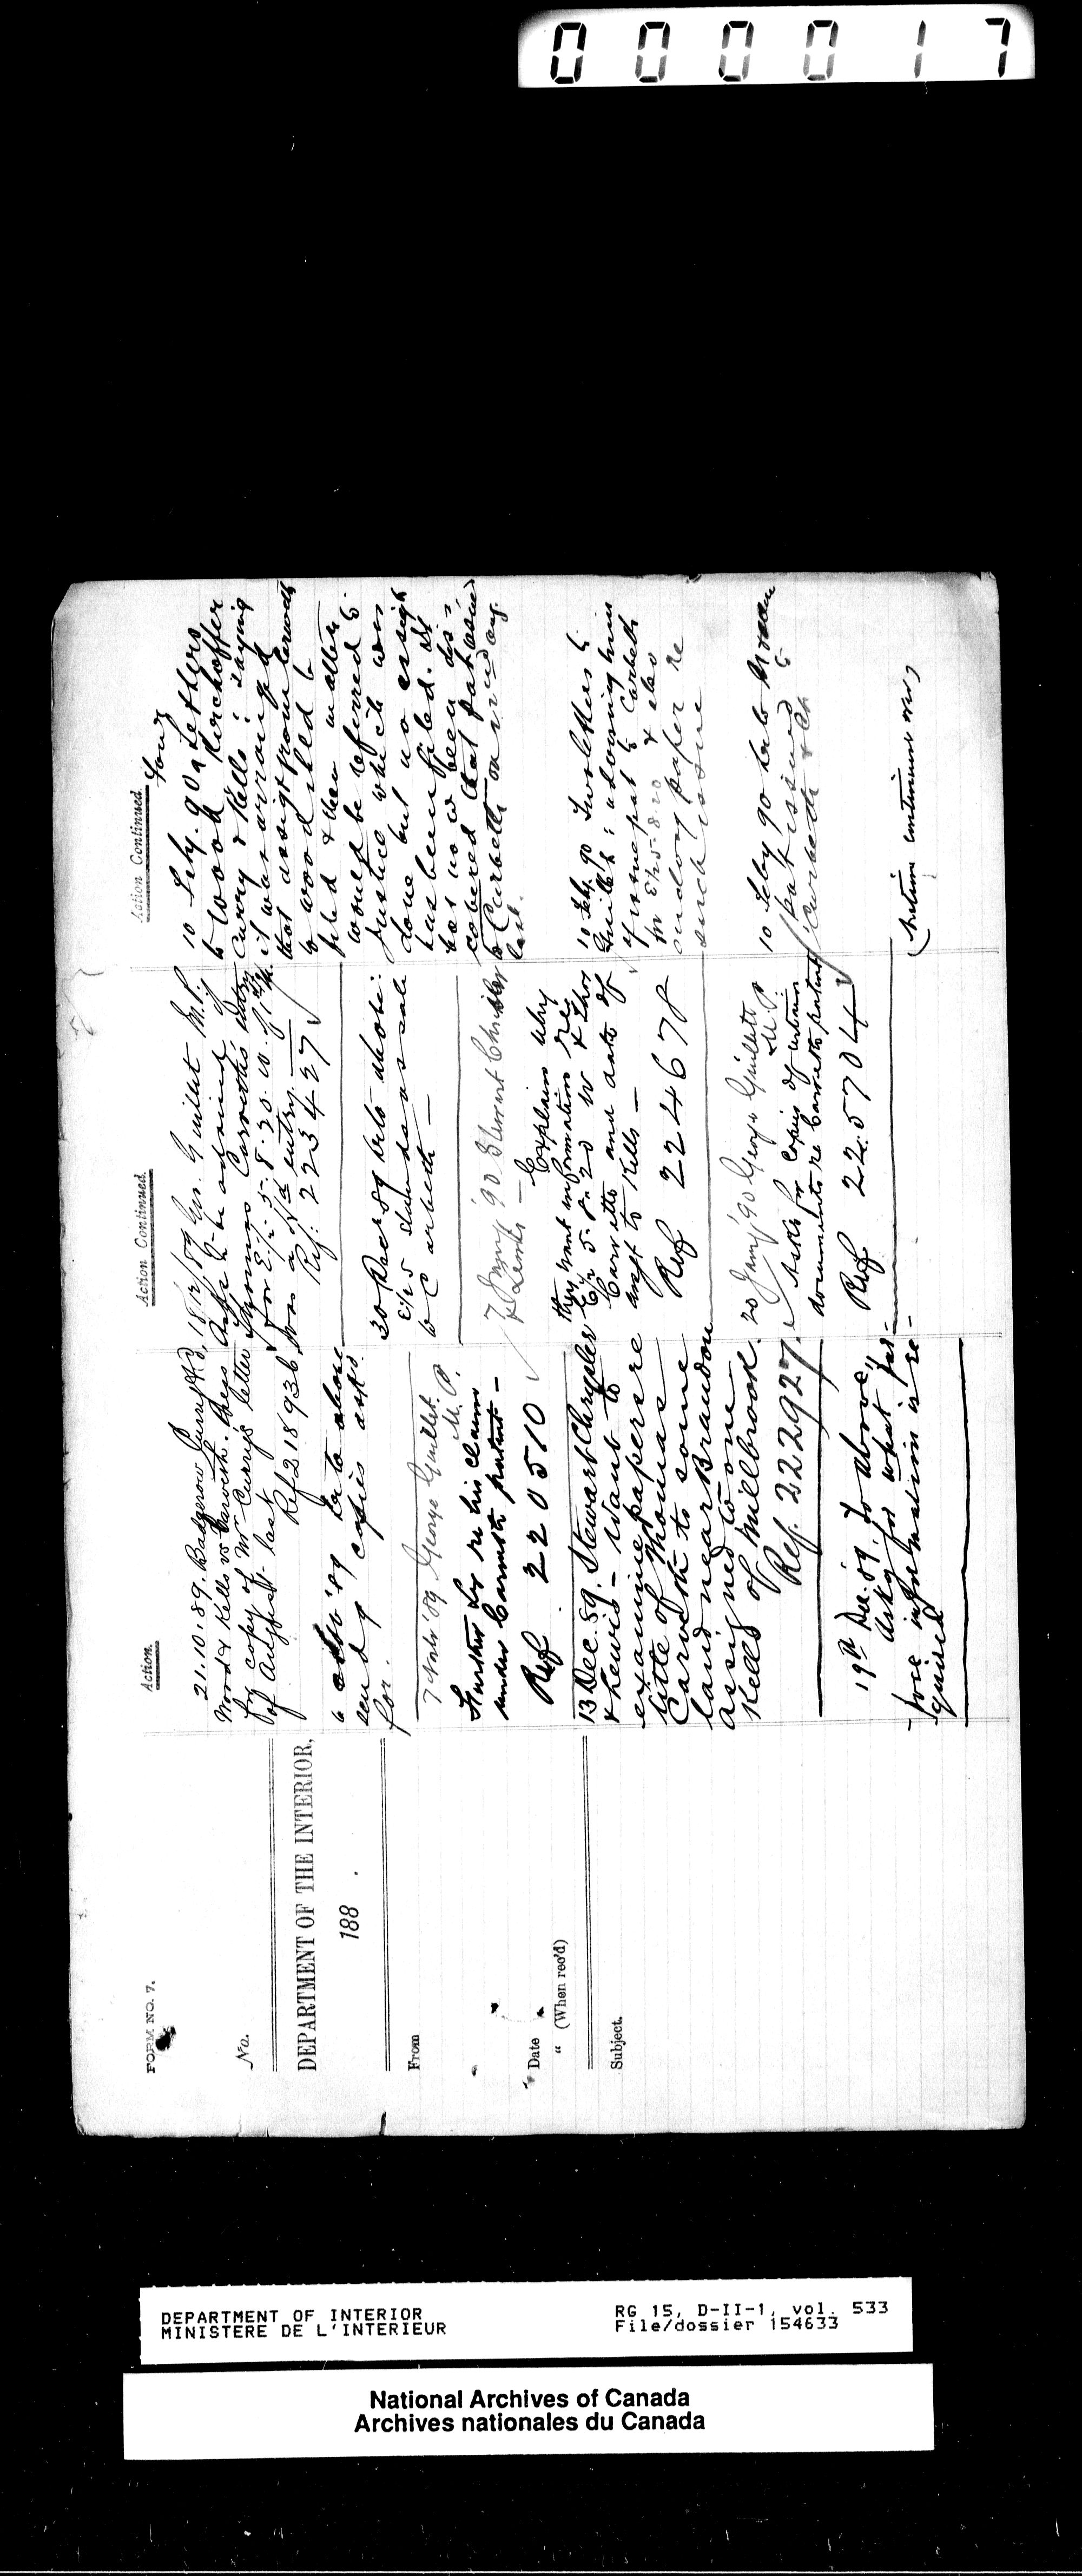 0 0 0 0 1 7
FORM NO. 7.
No.
DEPARTMENT OF THE INTERIOR,
188 .
From
Date
" (When rec'd)
Subject.
Action.
21.10.89. Badgerow
Wood & Kells vs
for copy of Mr Currys letter
of August last
Ref 218936
6 '89 to above
sendg copies askd
for.
7 Novbr '89 George Guillet
M.P.
Further re his claim
under patent -
Ref 220510
13 Dec. 89. Stewart Chrysler
& Lewis - Want to
examine papers re
title of Thomas
to some
land near Brandon
assigned to one
Kells of Millbrook.
Ref. 222927
19th Dec. 89. To above,
Askg for what pur-
pose information is re-
quired
Action Continued.
18/12/89 Geo. Guillet M.P.
Asks to be advised if
Thomas entry
for E½ 5. 8. 20. W. of 1st
was a entry.
Ref: 223427
30 Decr 89 to above:
E½ 5 stands as sale
to Carbeth -
7 Jany '90 Stewart Chrysler
& Lewis - Explains why
they want information re
E½ 5. 8. 20 W & Thos
and date of
to Kells -
Ref 224678
20 Jany '90 George Guillett
M.P.
Asks for copies of certain
documents re patent
Ref 225704
Action Continued.
10 Feby. 90 4 Letters
to Wood Kerchoffer
Curry & Kells: saying
it was arranged
that assigt from
to Wood shld be
fyled & then matter
would be referred to
Justice which was
done but no assigt
has been filed. It
has now been dis-
covered that pat issued
to Carbeth on 22nd Aug.
last.
10 Feby. 90 Two letters to
Guillet: advising him
of issue pat to Carbeth
for E½ 5-8-20 & also
paper re
such issue
10 Feby 90
pat issued to
Carbeth
(Action continued over)
DEPARTMENT OF INTERIOR
MINISTERE DE L'INTERIEUR
RG 15, D-II-1, vol. 533
File/dossier 154633
National Archives of Canada
Archives nationales du Canada